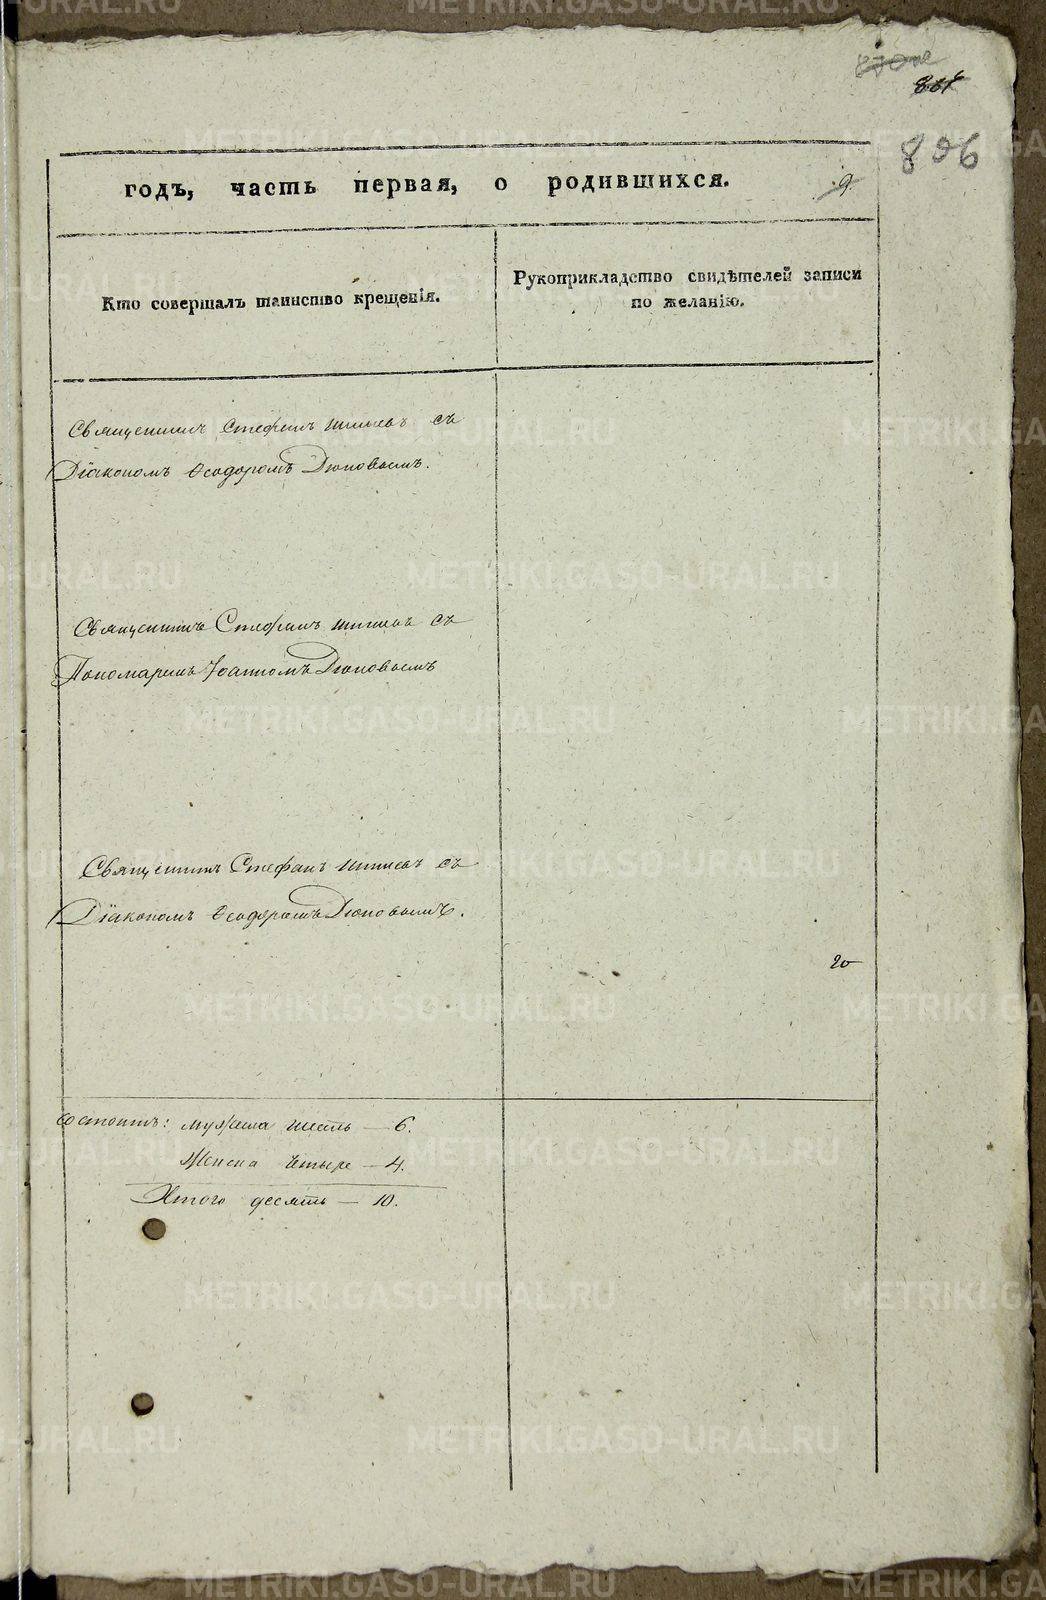 806
годъ, часть первая, о родившихся.
9.
Кто совершалъ таинство крещенія.
Рукоприкладство свидѣтелей записи
по желанію.
Священникъ Стефанъ съ
Діакономъ Ѳеодоромъ Дюповымъ.
Священникъ Стефанъ съ
Пономаремъ Іоанномъ Дюповымъ
Священникъ Стефанъ съ
Діакономъ Ѳеодоромъ Дюповымъ.
20
состоитъ: мужеска шесть — 6.
Женска четыре — 4.
Итого десять — 10.
METRIKI.GASO-URAL.RU